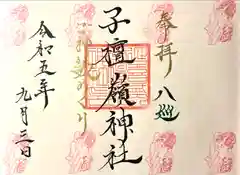 奉拝 八巡
子檀嶺神社
令和五年
九月三日